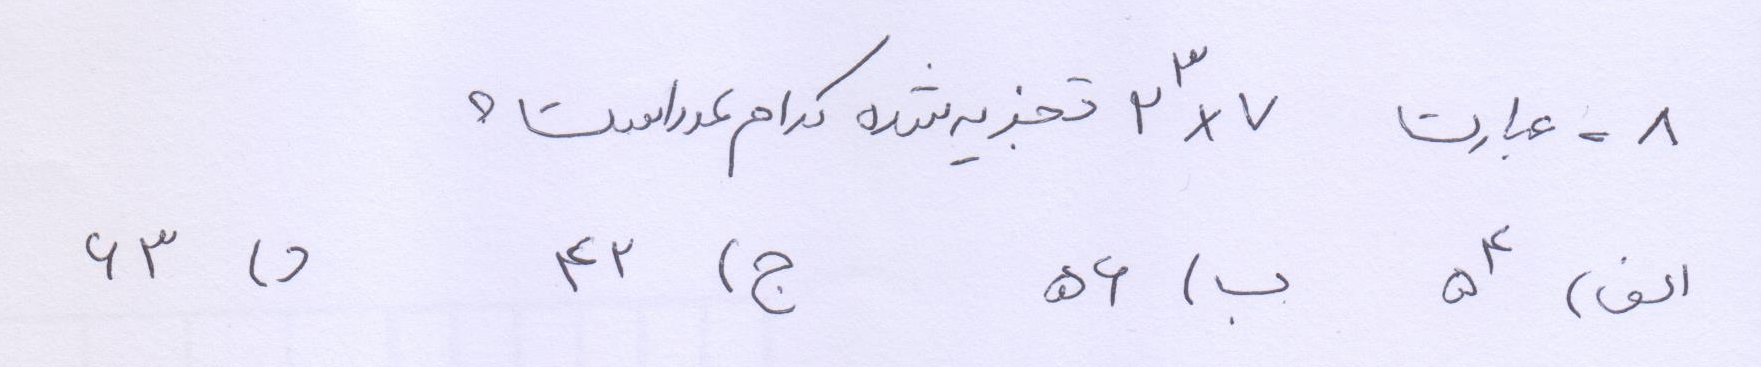 ۸ - عبارت ۲^۳ × ۷ تجزیه شده کدام عدد است؟
الف) ۵^۴ ب) ۵۶ ج) ۴۲ د) ۶۳